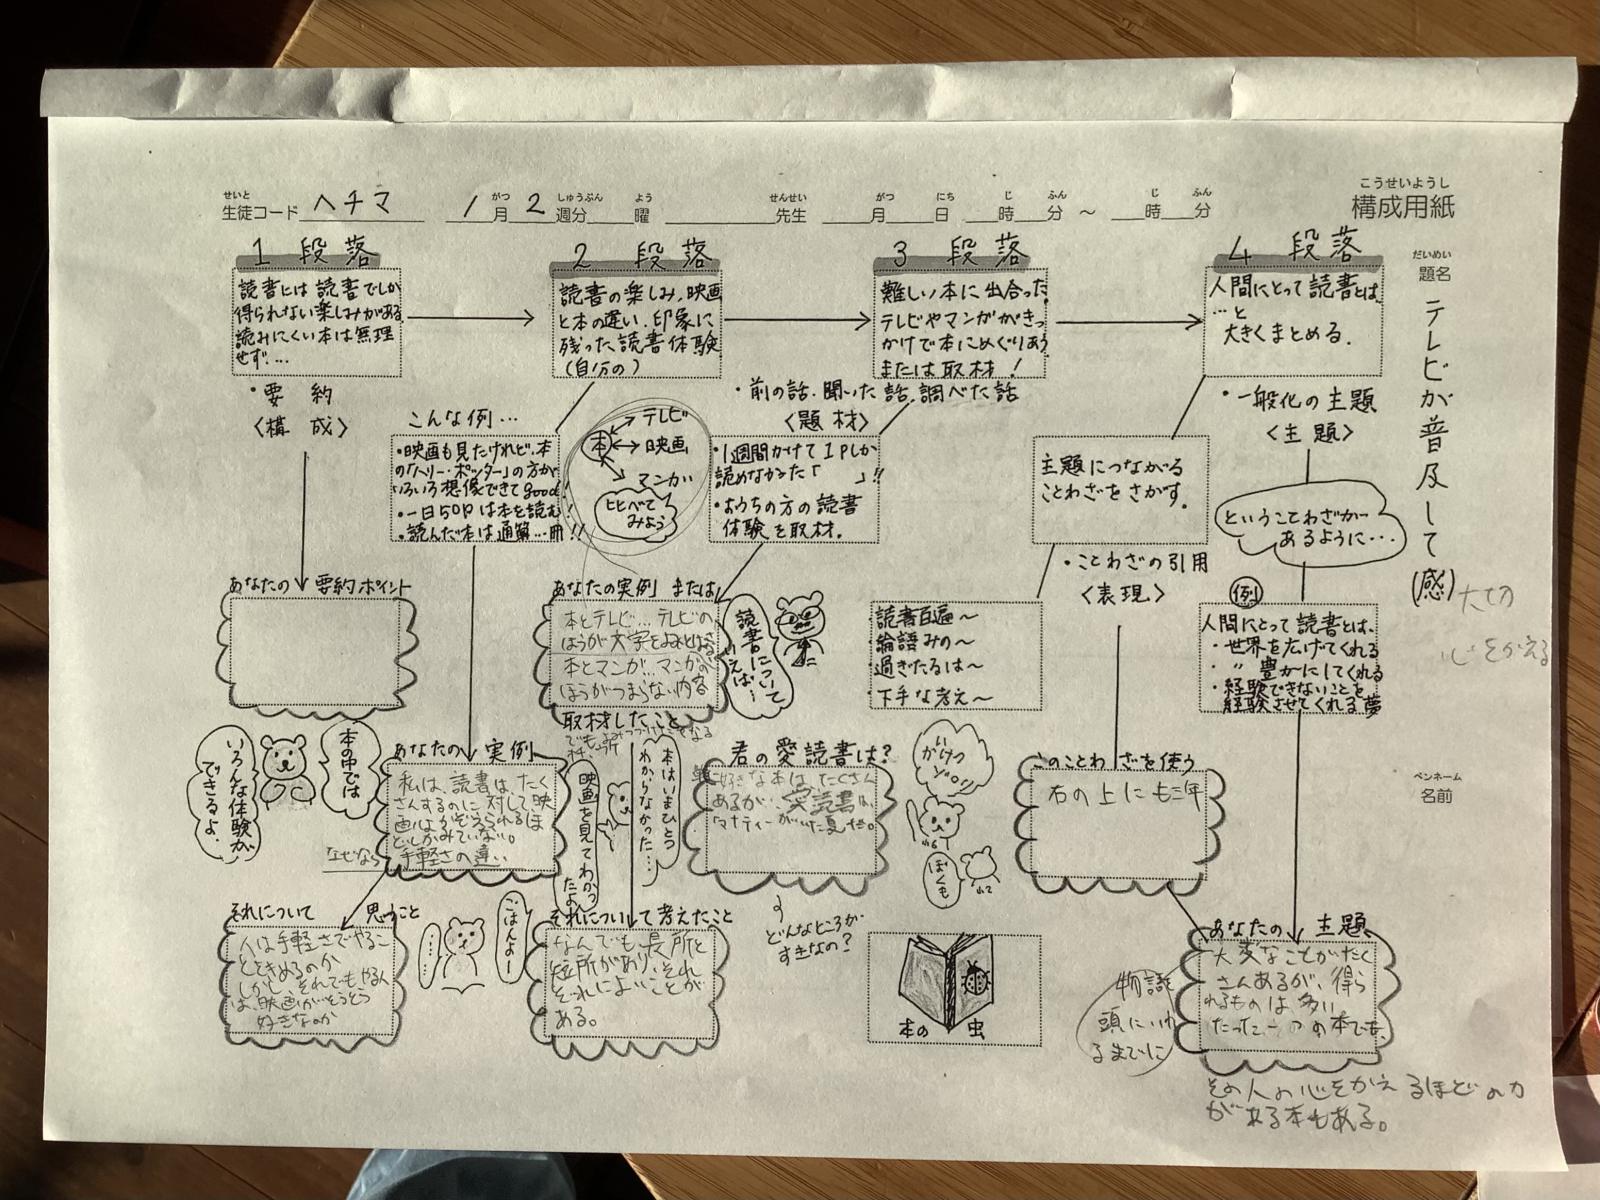 こうせいようし
構成用紙
せいと
生徒コード ヘチマ
がつ しゅうぶん よう
1月2週分 曜
せんせい
先生
がつ にち じ ふん じ ふん
月 日 時 分 〜 時 分
だいめい
題名
テレビが普及して(感)
大切
心をかえる
ペンネーム
名前
1 段落
読書には読書でしか
得られない楽しみがある
読みにくい本は無理
せず…
・要約
〈構成〉
あなたの要約ポイント
本の中では
いろんな体験が
できるよ。
2 段落
読書の楽しみ、映画
と本の違い、印象に
残った読書体験
(自分の)
こんな例…
・映画も見たけれど、本
の「ハリー・ポッター」の方が
いろいろ想像できてgood!
・一日50Pは本を読む!
・読んだ本は通算…冊!!
本
テレビ
映画
マンガ
比べて
みよう
あなたの実例
私は、読書は、たく
さんするのに対して映
画はかぞえられるほ
どしかみていない。
手軽さの違い
なぜなら
それについて 思うこと
人は手軽さでやるこ
とをきめるのか
しかし、それでもやる人
は、映画がそうとう
好きなのか
ごはんよー
……
3 段落
難しい本に出合った
テレビやマンガがきっ
かけで本にめぐりあう
または取材!
・前の話、聞いた話、調べた話
〈題材〉
・1週間かけて1Pしか
読めなかった「 」!!
・おうちの方の読書
体験を取材。
あなたの実例 または
本とテレビ…テレビの
ほうが大字をよみとばる
本とマンガ…マンガの
ほうがつまらない内容
取材したこと
読書について
いえば…
本はいまひとつ
わからなかった…
映画を見てわかっ
たよ
それについて考えたこと
なんでも長所と
短所があり、それ
ぞれによいことが
ある。
君の愛読書は?
好きな本は、たくさん
あるが、愛読書は、
「マナティーがいた夏」だ。
どんなところが
すきなの?
かいけつ
ゾロリ
ぼくも
本の 虫
4 段落
人間にとって読書とは、
…と
大きくまとめる。
・一般化の主題
〈主題〉
主題につながる
ことわざをさがす。
ということわざが
あるように…
・ことわざの引用
〈表現〉
・読書百遍〜
・論語みの〜
・過ぎたるは〜
・下手な考え〜
このことわざを使う
石の上にも三年
例
人間にとって読書とは、
・世界を広げてくれる
・〃 豊かにしてくれる
・経験できないことを
経験させてくれる夢
あなたの 主題
大変なことがたく
さんあるが、得ら
れるものは、多い
たった一つの本でも、
その人の心をかえるほどの力
がある本もある。
物語
頭にいれ
るまでに